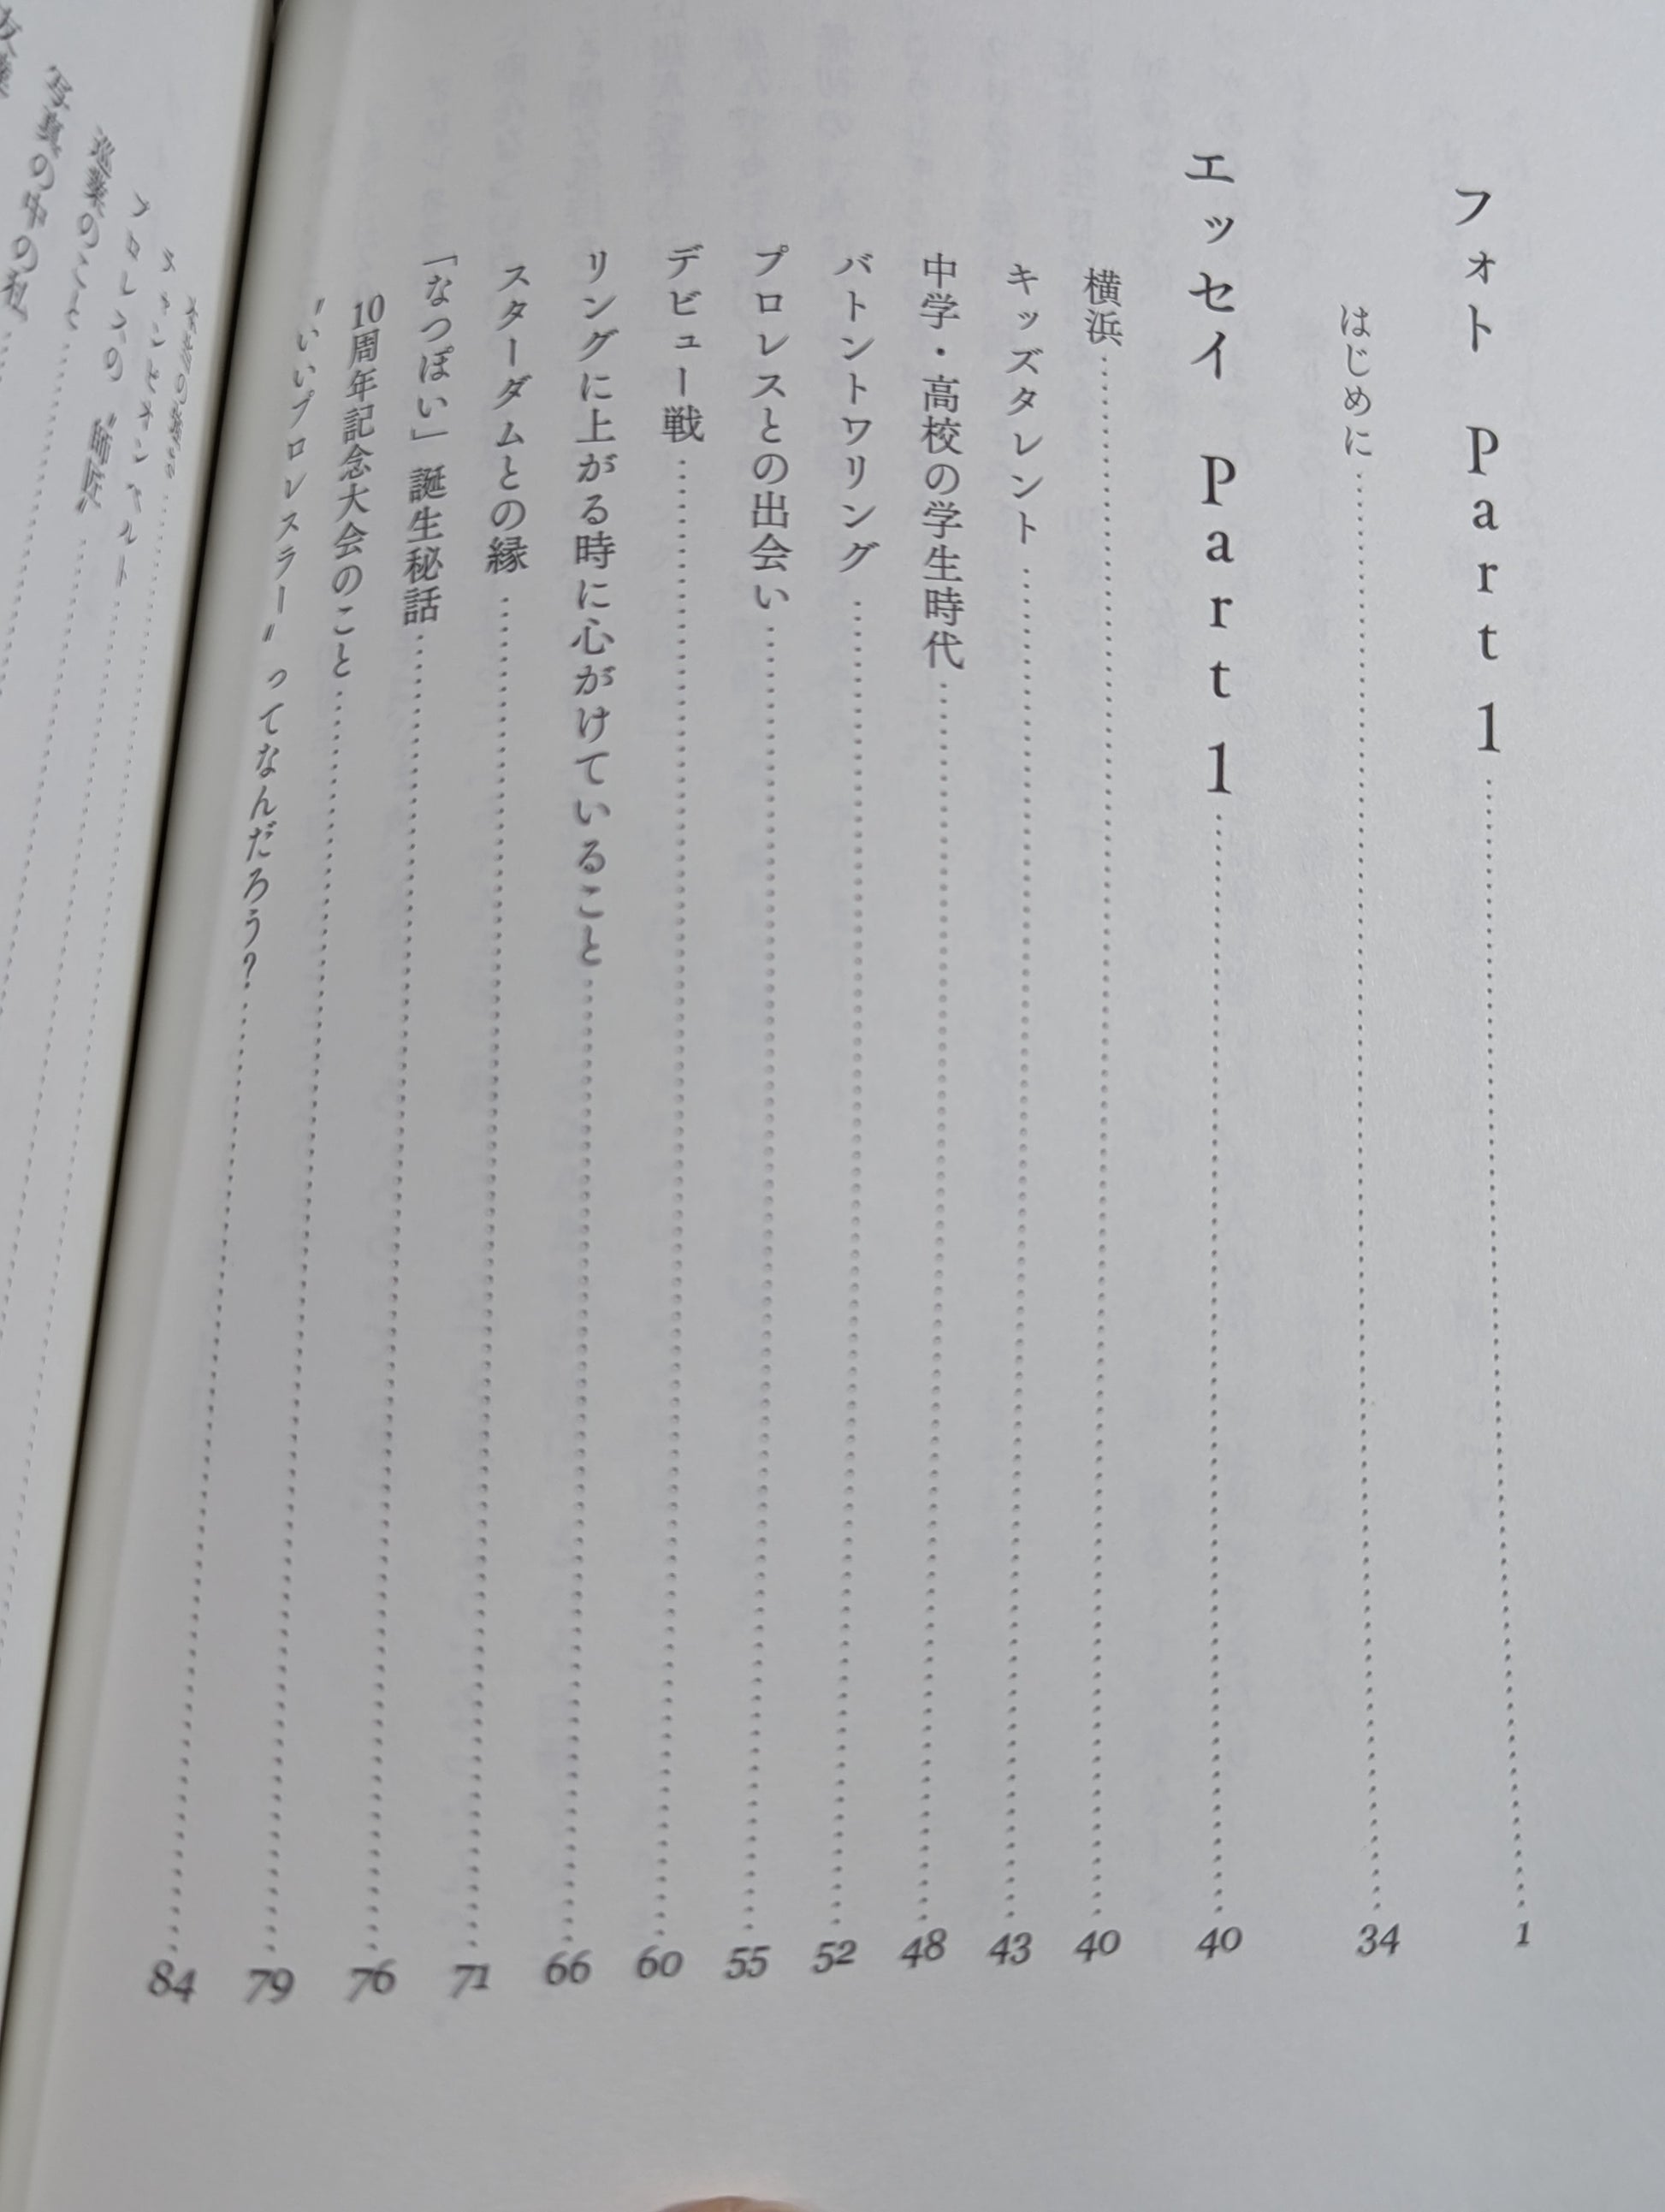 フォト Part 1 …… 1
はじめに …… 34
エッセイ Part 1 …… 40
横浜 …… 40
キッズタレント …… 43
中学・高校の学生時代 …… 48
バトントワリング …… 52
プロレスとの出会い …… 55
デビュー戦 …… 60
リングに上がる時に心がけていること …… 66
スターダムとの縁 …… 71
「なつぽい」誕生秘話 …… 76
10周年記念大会のこと …… 79
〝いいプロレスラー〟ってなんだろう? …… 84
チャンピオンベルト ……
プロレスの〝師匠〟 ……
巡業のこと ……
写真の中の私 ……